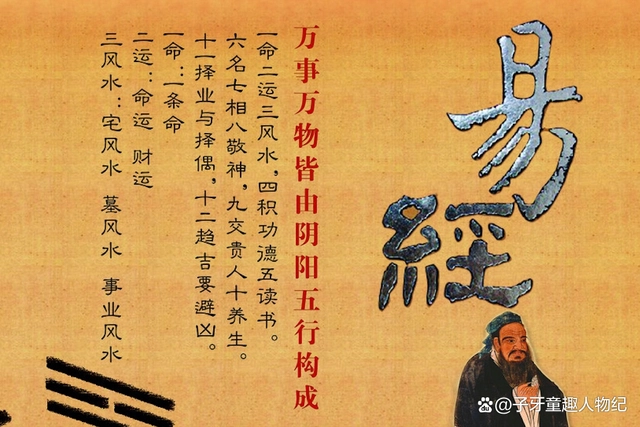 易經
万事万物皆由阴阳五行构成
一命二运三风水,四积功德五读书。
六名七相八敬神,九交贵人十养生。
十一择业与择偶,十二趋吉要避凶。
一命:一条命
二运:命运 财运
三风水:宅风水 墓风水 事业风水
@子牙童趣人物纪